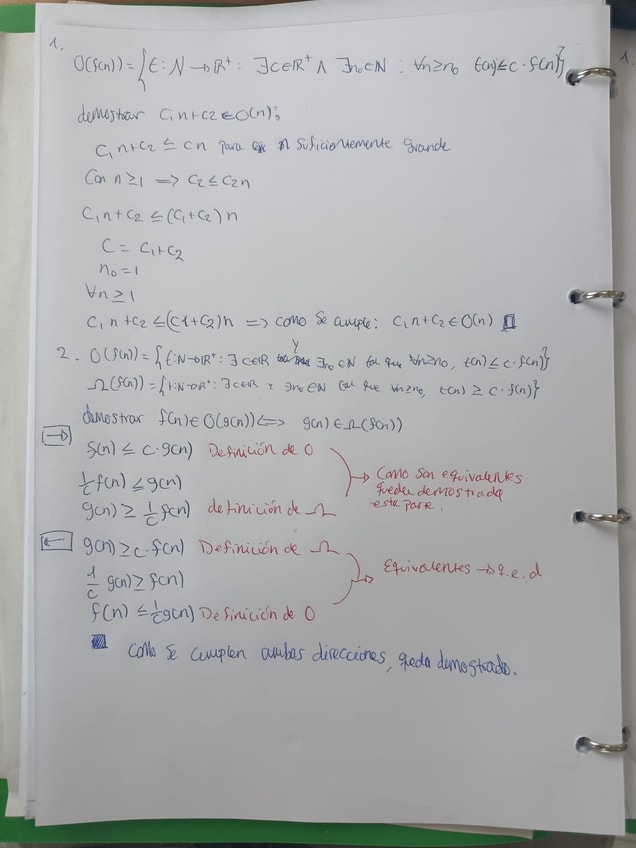 1.
O(f(n)) = { t: N → R⁺ : ∃c∈R⁺ ∧ ∃n₀∈N : ∀n≥n₀ t(n) ≤ c · f(n)}
demostrar c₁n+c₂ ∈ O(n):
c₁n+c₂ ≤ cn para n suficientemente grande
Con n ≥ 1 ⟹ c₂ ≤ c₂n
c₁n+c₂ ≤ (c₁+c₂)n
C = c₁+c₂
n₀ = 1
∀n ≥ 1
c₁n+c₂ ≤ (c1+c₂)n ⟹ como se cumple: c₁n+c₂ ∈ O(n)
2. O(f(n)) = { t: N→R⁺ : ∃ c∈R y ∃n₀∈N tal que ∀n≥n₀, t(n) ≤ c · f(n)}
Ω(f(n)) = { t: N→R⁺ : ∃ c∈R y ∃n₀∈N tal que ∀n≥n₀, t(n) ≥ c · f(n)}
demostrar f(n) ∈ O(g(n)) ⟺ g(n) ∈ Ω(f(n))
→ f(n) ≤ c · g(n) Definición de O
1/c f(n) ≤ g(n)
g(n) ≥ 1/c f(n) definición de Ω
→ Como son equivalentes
queda demostrada
esta parte.
← g(n) ≥ c · f(n) Definición de Ω
1/c g(n) ≥ f(n)
f(n) ≤ 1/c g(n) Definición de O
→ Equivalentes → q.e.d
Como se cumplen ambas direcciones, queda demostrado.